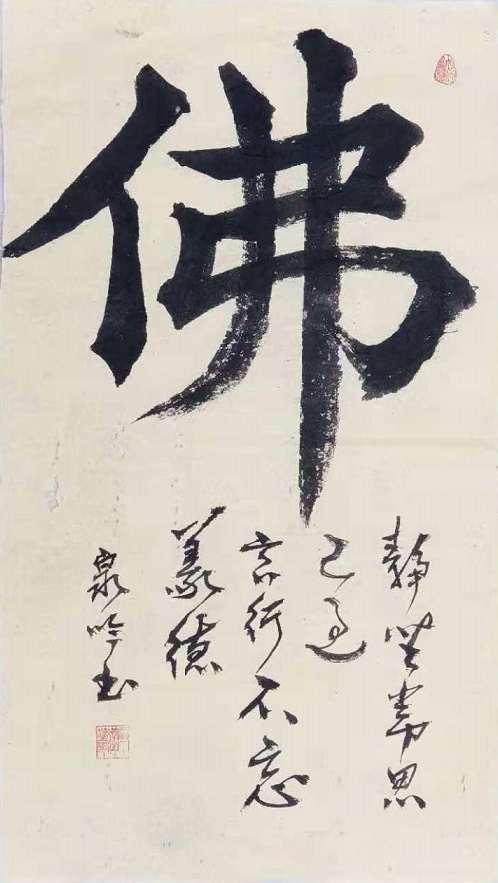 佛
静坐常思
己过
言行不忘
義德
泉吟书